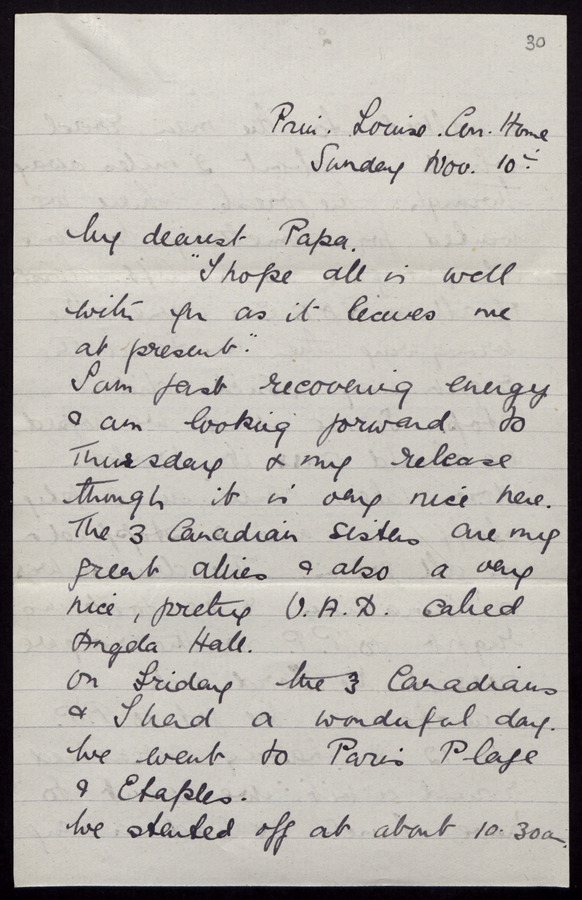 30
Prin. Louise. Con. Home
Sunday Nov. 10th
My dearest Papa.
"I hope all is well
with yr as it leaves me
at present."
I am fast recovering energy
& am looking forward to
Thursday & my release
though it is very nice here.
The 3 Canadian Sisters are my
great allies & also a very
nice, pretty V.A.D. called
Angela Hall.
On Friday the 3 Canadians
& I had a wonderful day.
We went to Paris Plage
& Etaples.
We started off at about 10.30am